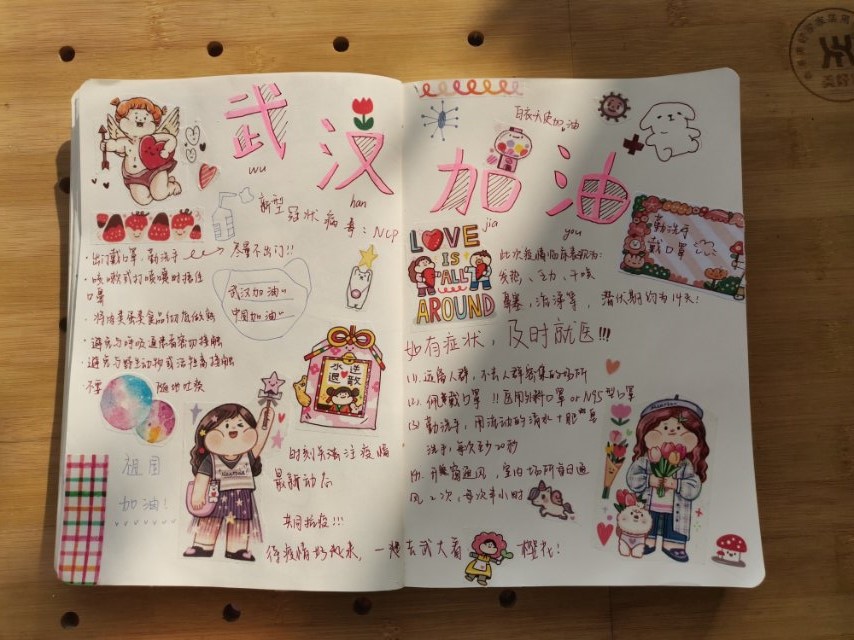 武汉
wu
han
新型冠状病毒：NCP
·出门戴口罩，勤洗手
尽量不出门!!
·咳嗽或打喷嚏时捂住
口鼻
武汉加油~
中国加油~
·将肉类蛋类食品彻底做熟
·避免与呼吸道患者密切接触
·避免与野生动物或活牲畜接触
·不要随地吐痰
永不
退
送
敌
祖国
加油!
时刻关注疫情
最新动态
共同抗疫!!!
待疫情
一起去武大看樱花!
白衣天使加油
加油
jia
you
LOVE
IS
ALL
AROUND
勤洗手
戴口罩
此次疫情临床表现为:
发热、乏力、干咳
鼻塞,流涕等,潜伏期约为14天!
如有症状,及时就医!!!
(1).远离人群,不去人群密集的场所
(2).佩戴口罩!!医用外科口罩or N95型口罩
(3).勤洗手,用流动的清水+肥皂
洗手,每次至少20秒
(4).开窗通风,室内场所每日通
风2次,每次半小时